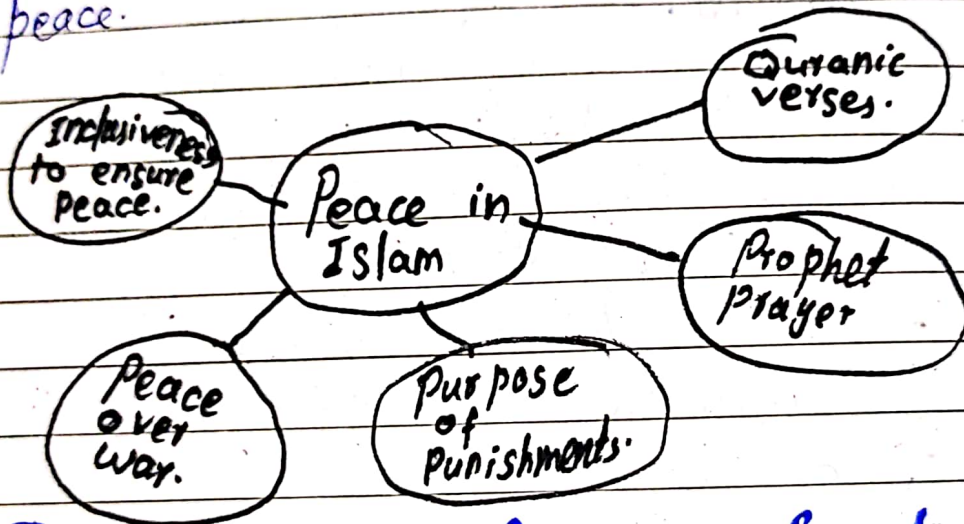 peace.
Quranic
verses.
Inclusiveness
to ensure
peace.
Peace in
Islam
Prophet
prayer
Peace
over
war.
Purpose
of
punishments.